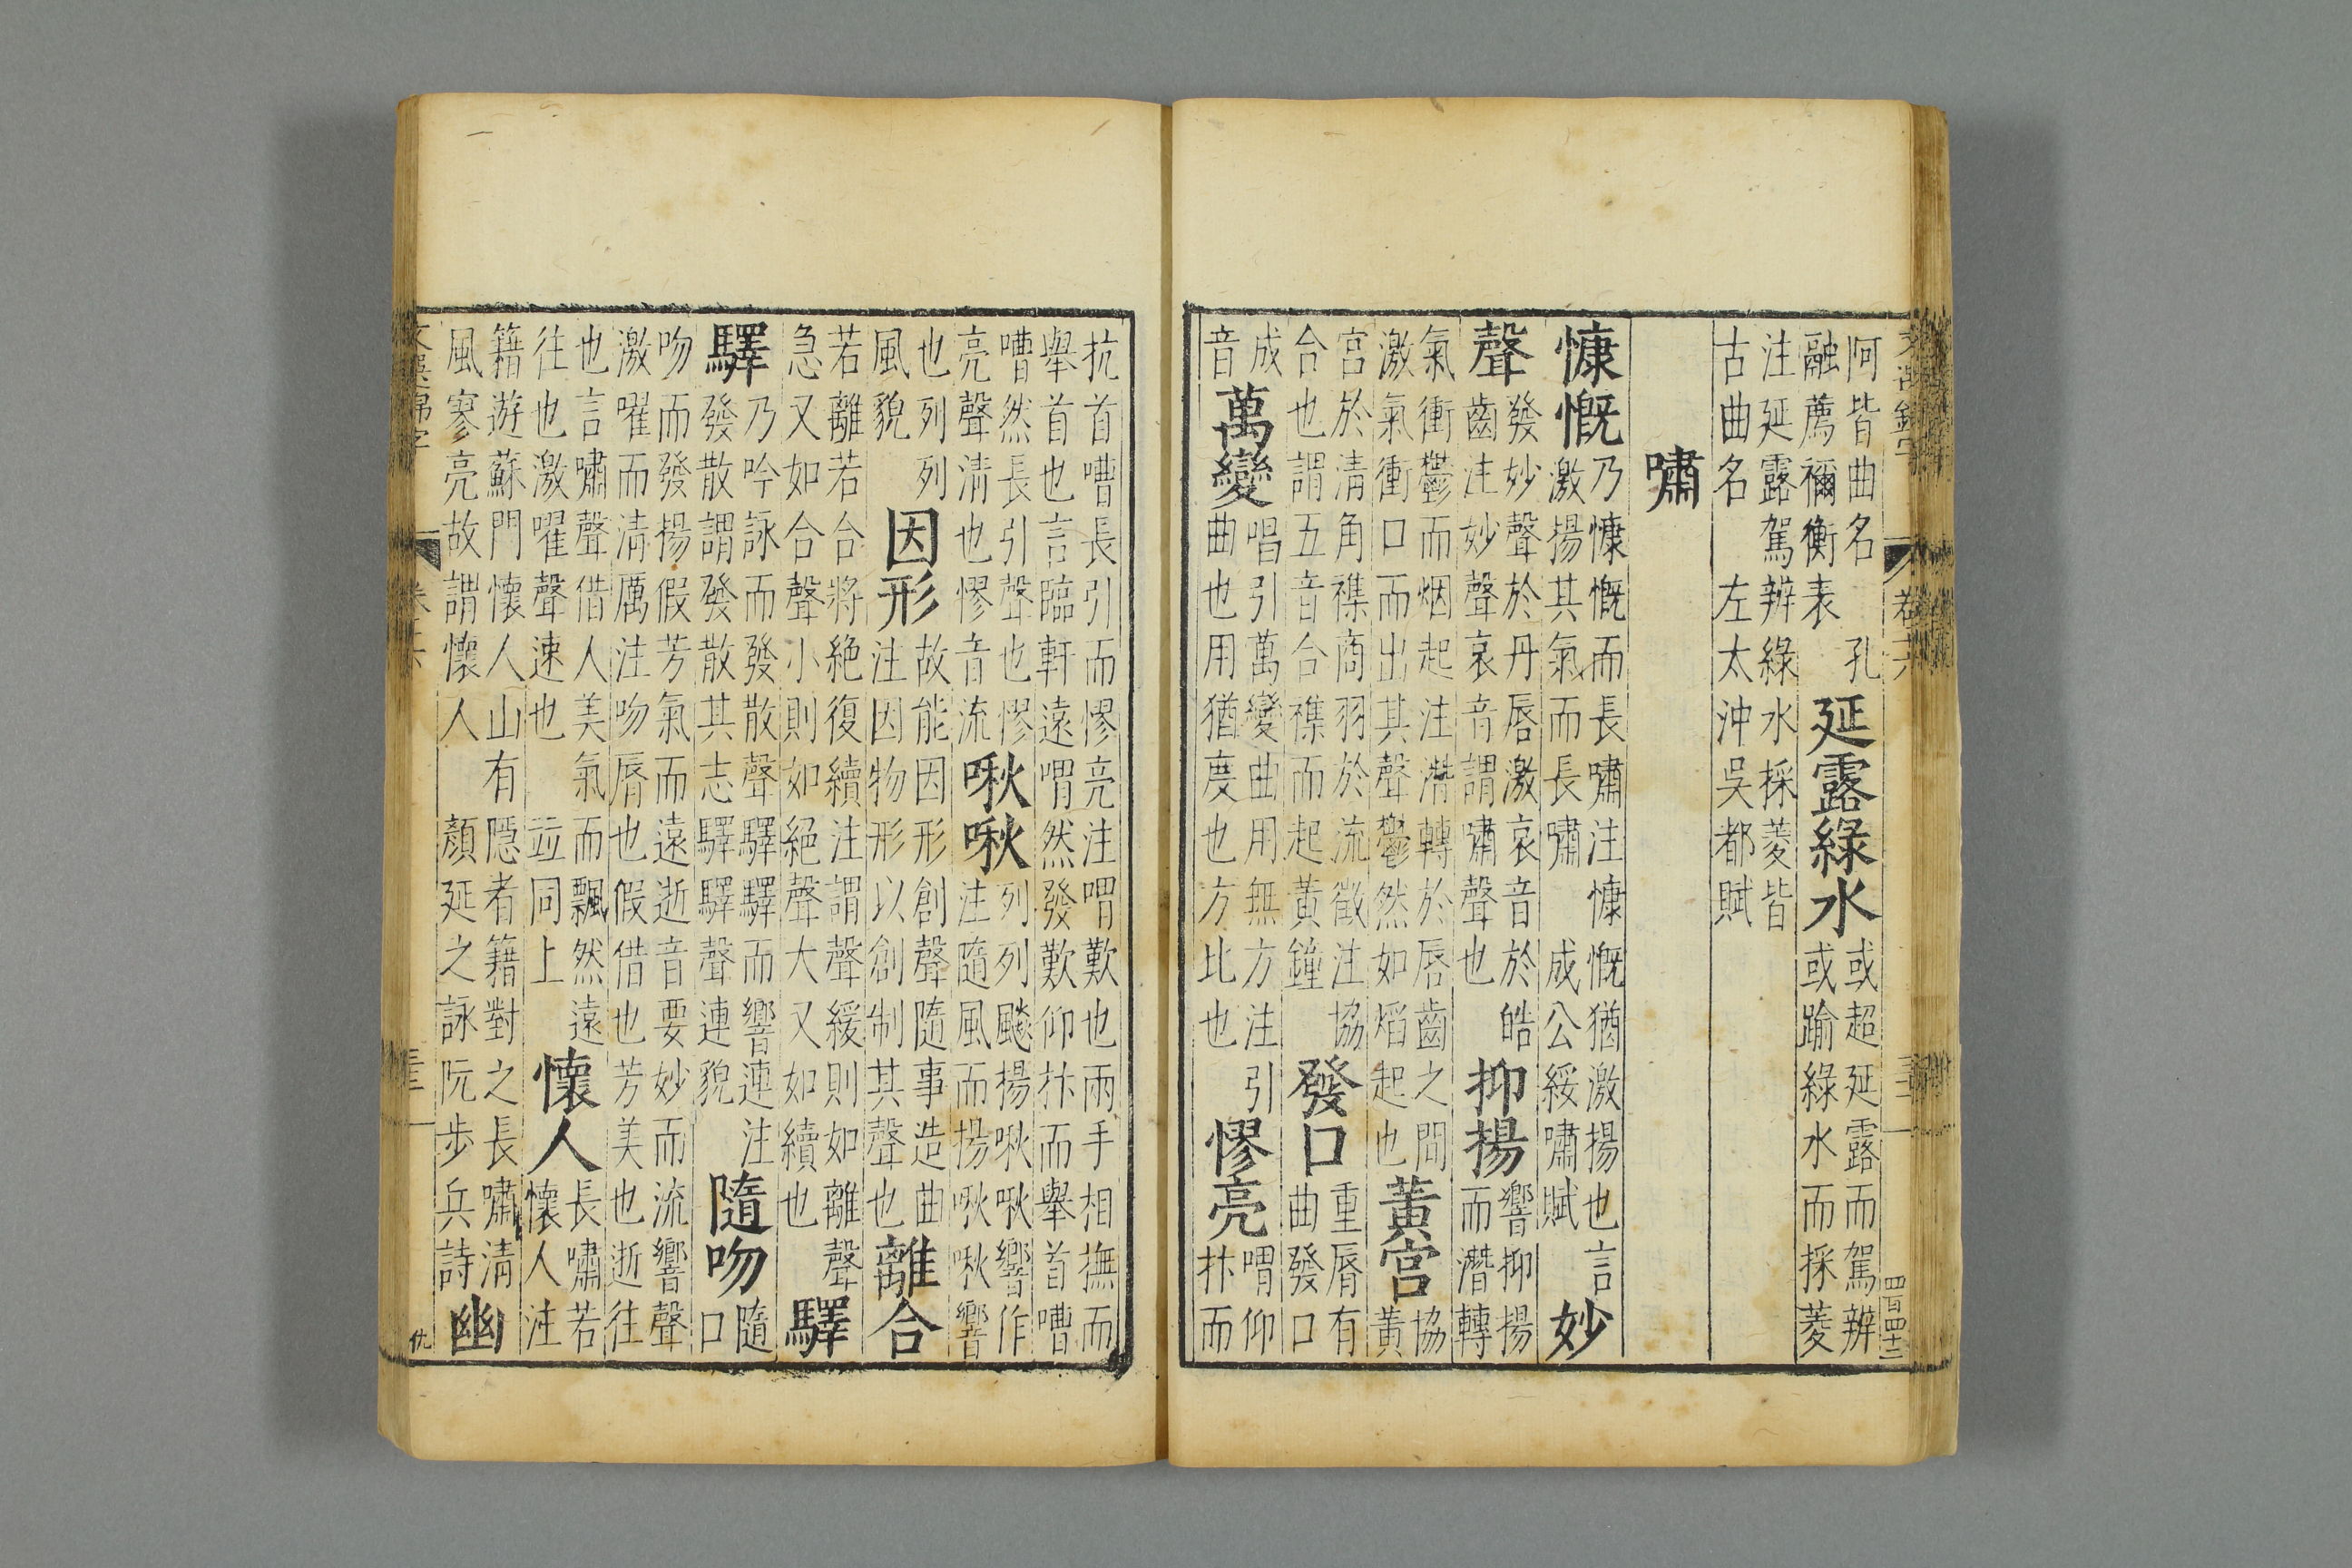 阿皆曲名　孔
融薦禰衡表
延露綠水
或超延露而駕辨
或踰綠水而採菱
注延露駕辨綠水採菱皆
古曲名　左太沖吳都賦
嘯
慷慨
乃慷慨而長嘯注慷慨猶激揚也言
激揚其氣而長嘯　成公綏嘯賦
妙
聲
發妙聲於丹唇激哀音於皓
齒注妙聲哀音謂嘯聲也
抑揚
響抑揚
而潛轉
氣衝鬱而烟起注潛轉於唇齒之間
激氣衝口而出其聲鬱然如熖起也
黃宮
協
黃
宮於清角襍商羽於流徵注協
合也謂五音合襍而起黃鐘
發口
重脣有
曲發口
成
音
萬變
唱引萬變曲用無方注引
曲也用猶度也方比也
慘亮
喟仰
抃而
抗首嘈長引而慘亮注喟歎也兩手相撫而
舉首也言臨軒遠喟然發歎仰抃而舉首嘈
嘈然長引聲也慘
亮聲清也慘音流
啾啾
列列飈揚啾啾響作
注隨風而揚啾啾響
也列列
風貌
因形
故能因形創聲隨事造曲
注因物形以創制其聲也
離合
若離若合將絕復續注謂聲緩則如離聲
急又如合聲小則如絕聲大又如續也
驛
驛
乃吟詠而發散聲驛驛而響連注
發散謂發散其志驛驛聲連貌
隨吻
隨
口
吻而發揚假芳氣而遠逝音要妙而流響聲
激嚁而清厲注吻脣也假借也芳美也逝往
也言嘯聲借人美氣而飄然遠
往也激嚁聲速也　並同上
懷人
長嘯若
懷人注
籍遊蘇門懷人山有隱者籍對之長嘯清
風寥亮故謂懷人　顏延之詠阮步兵詩
幽